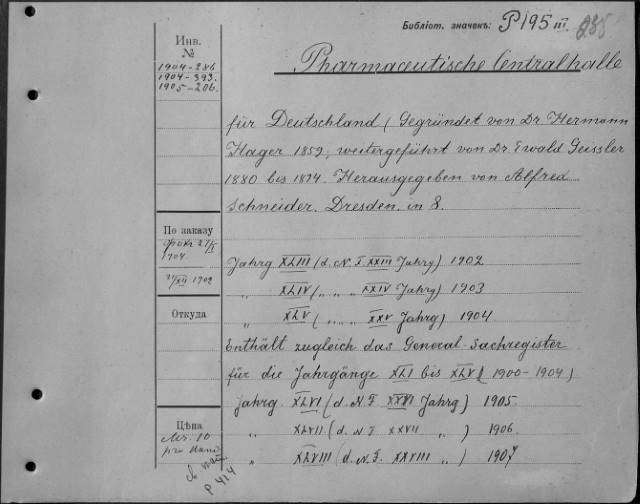 Библіот. значекъ: P 195 III. 235
Инв.
№
1904-286
1904-393.
1905-206.
Pharmaceutische Centralhalle
für Deutschland (Gegründet von Dr. Hermann
Hager 1859, weitergeführt von Dr. Ewald Geissler
1880 bis 1894. Herausgegeben von Alfred
Schneider. Dresden. in 8.
По заказу
1904
1902
Jahrg XLIII (d. N. F XXIII Jahrg) 1902
„ XLIV („ „ „ XXIV Jahrg) 1903
„ XLV („ „ „ XXV Jahrg) 1904
Откуда
Enthält zugleich das General-Sachregister
für die Jahrgänge XLI bis XLV (1900-1904)
Jahrg. XLVI (d. N. F. XXVI Jahrg) 1905.
„ XLVII (d. N F XXVII „ ) 1906.
„ XLVIII (d. N. F. XXVIII „ ) 1907
Цѣна
Mr. 10
pro Band
P 414